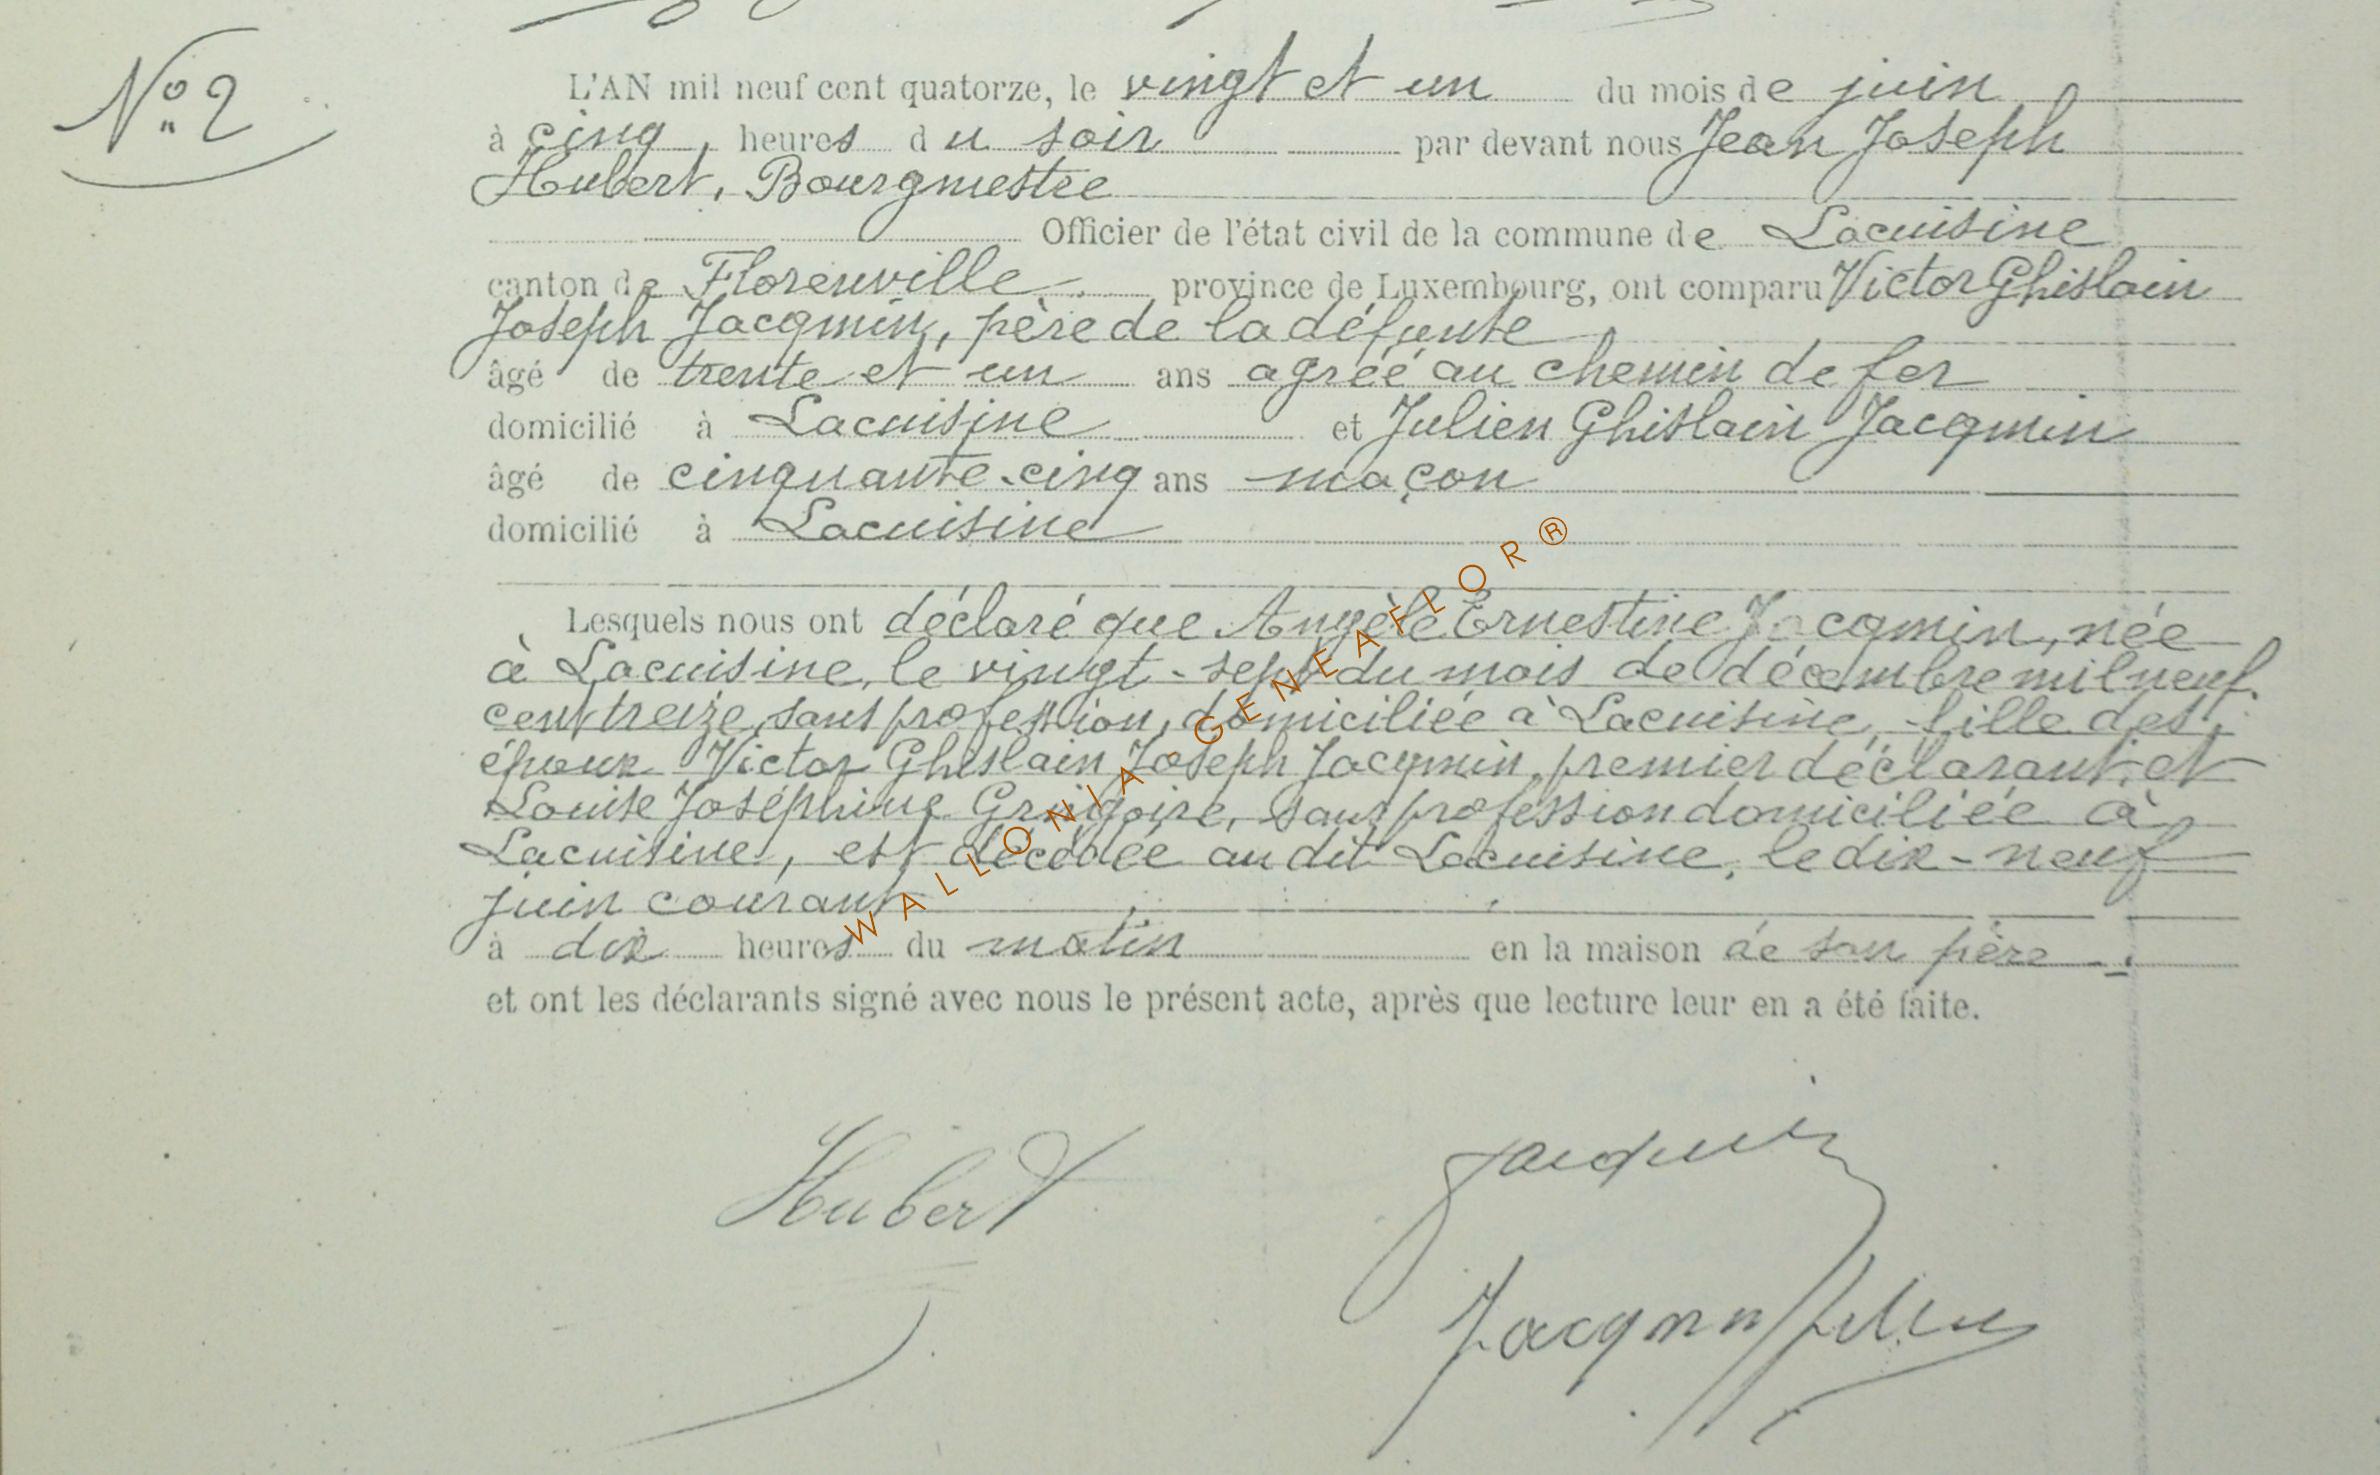 No 2
L'AN mil neuf cent quatorze, le vingt et un du mois de juin
à cinq heures du soir par devant nous Jean Joseph
Hubert, Bourgmestre
Officier de l'état civil de la commune de Lacuisine
canton de Florenville province de Luxembourg, ont comparu Victor Ghislain
Joseph Jacqmin, père de la défunte
âgé de trente et un ans agréé au chemin de fer
domicilié à Lacuisine et Julien Ghislain Jacqmin
âgé de cinquante-cinq ans maçon
domicilié à Lacuisine
Lesquels nous ont déclaré que Angèle Ernestine Jacqmin, née
à Lacuisine, le vingt-sept du mois de décembre mil neuf
cent treize, sans profession, domiciliée à Lacuisine, fille des
époux Victor Ghislain Joseph Jacqmin, premier déclarant et
Louise Joséphine Grégoire, sans profession domiciliée à
Lacuisine, est décédée au dit Lacuisine, le dix-neuf
juin courant
à dix heures du matin en la maison de son père
et ont les déclarants signé avec nous le présent acte, après que lecture leur en a été faite.
Hubert
Jacqmin
Jacqmin Julien
WALLONIA-GENEAFLOR®